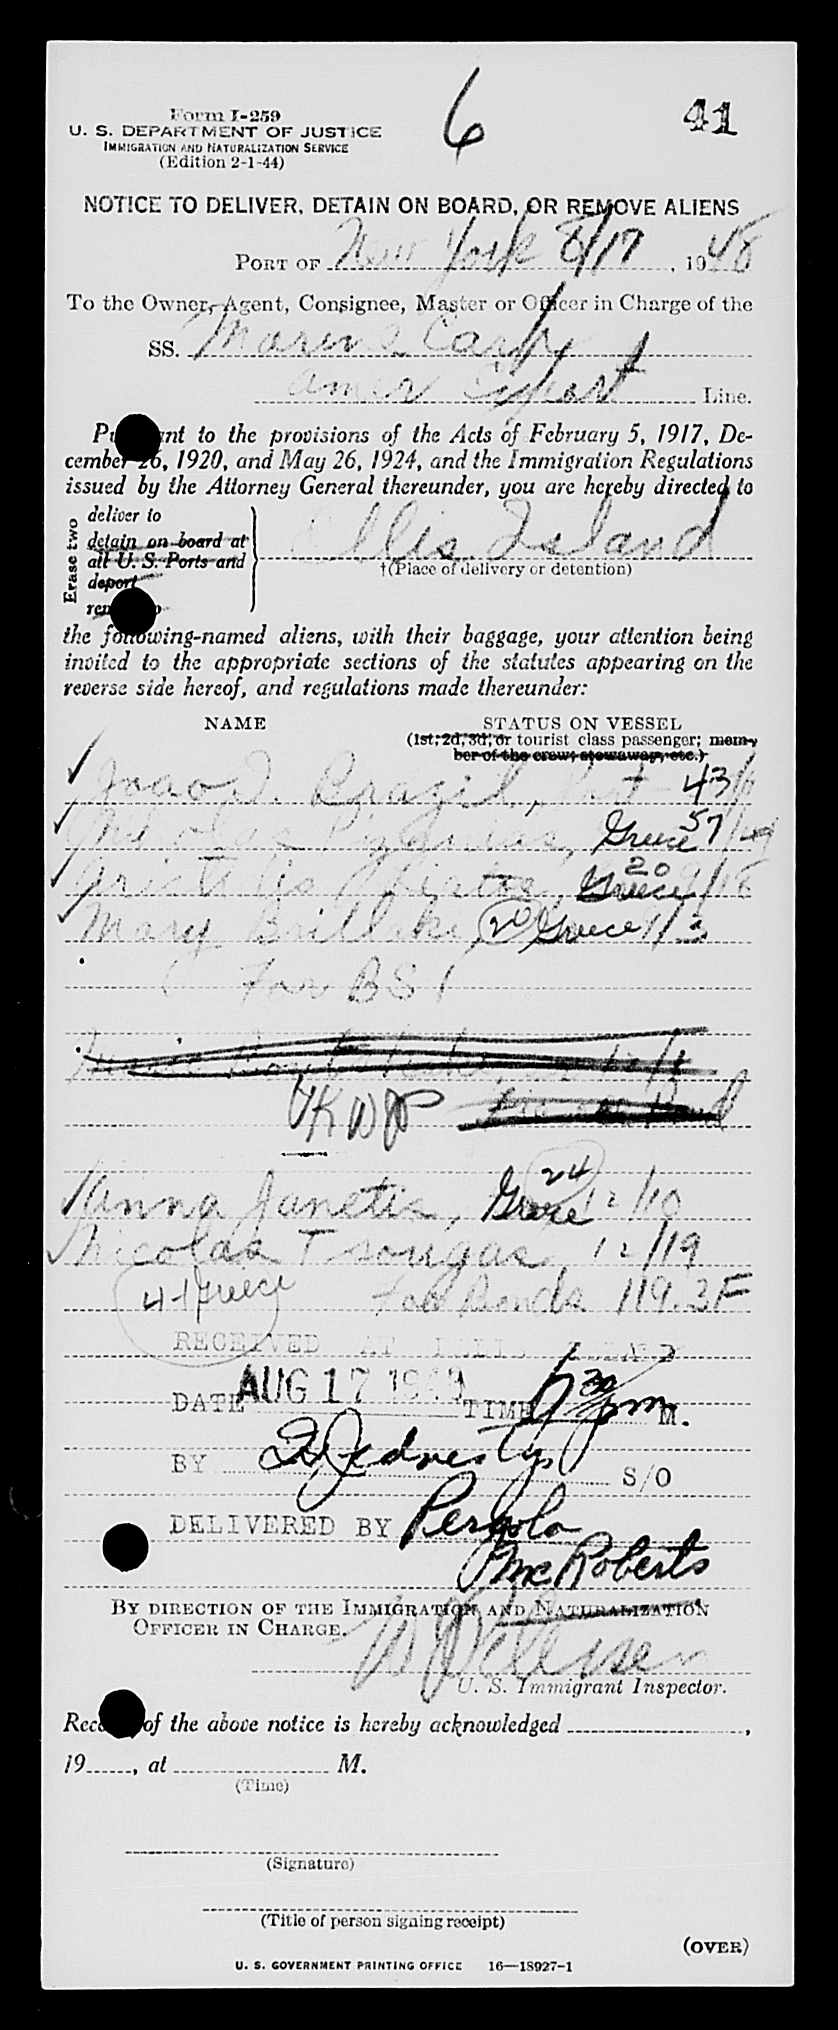 Form I-259
6
41
U. S. DEPARTMENT OF JUSTICE
IMMIGRATION AND NATURALIZATION SERVICE
(Edition 2-1-44)
NOTICE TO DELIVER, DETAIN ON BOARD, OR REMOVE ALIENS
PORT OF New York 8/17, 1948
To the Owner, Agent, Consignee, Master or Officer in Charge of the
SS. Marine Carp
Amer Export Line.
to the provisions of the Acts of February 5, 1917, De-
cember 26, 1920, and May 26, 1924, and the Immigration Regulations
issued by the Attorney General thereunder, you are hereby directed to
Erase two
deliver to
detain on board at
all U. S. Ports and
deport
Ellis Island
†(Place of delivery or detention)
the following-named aliens, with their baggage, your attention being
invited to the appropriate sections of the statutes appearing on the
reverse side hereof, and regulations made thereunder:
NAME
STATUS ON VESSEL
(1st, 2d, 3d, or tourist class passenger; mem-
ber of the crew, stowaway, etc.)
Joao J. Brazil, Port 43
Nikolas Greece 57
20 Greece 9/18
Mary 20 Greece 1/3
6 For BSI
Anna Janetis, Greece 24 12/10
Nicolas Tsougas, 12/19
41 Greece
For Bonds 119.3F
RECEIVED AT ELLIS ISLAND
DATE AUG 17 1948 TIME 630 pm M.
BY S/O
DELIVERED BY Pergola
McRoberts
BY DIRECTION OF THE IMMIGRATION AND NATURALIZATION
OFFICER IN CHARGE.
U. S. Immigrant Inspector.
of the above notice is hereby acknowledged ,
19 , at M.
(Time)
(Signature)
(Title of person signing receipt)
(OVER)
U. S. GOVERNMENT PRINTING OFFICE 16—18927-1